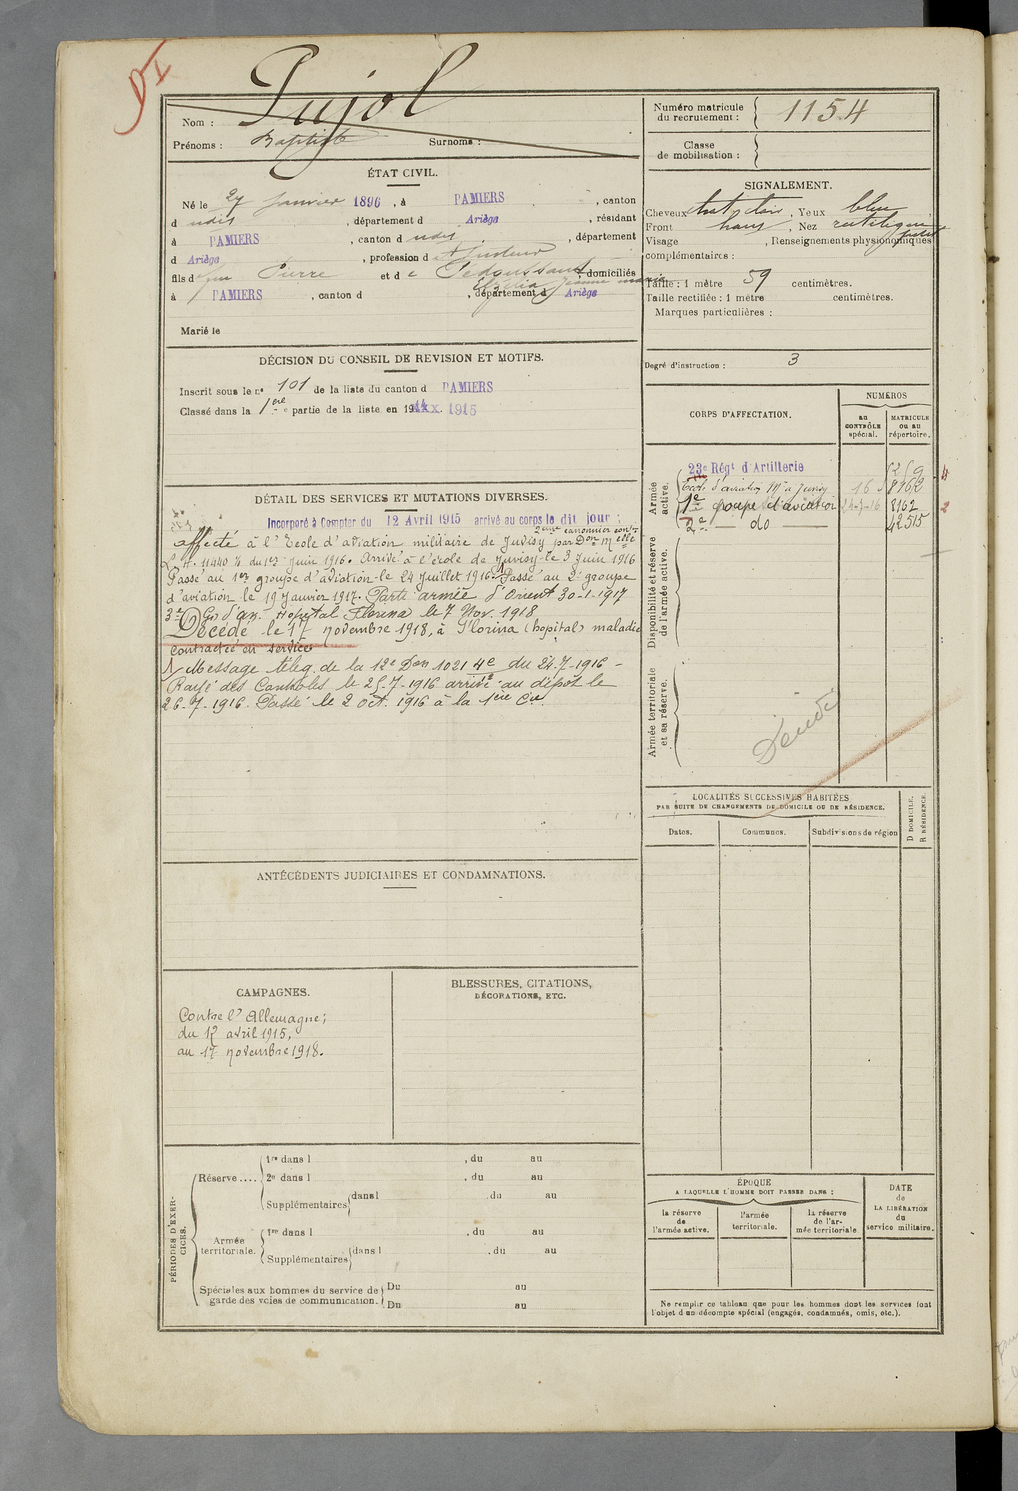 DI
Nom : Pujol
Prénoms : Baptiste Surnoms :
ÉTAT CIVIL.
Né le 27 Janvier 1896, à PAMIERS, canton
d udis, département d Ariège, résidant
à PAMIERS, canton d udis, département
d Ariège, profession d Ajusteur
fils d feu Pierre et d e Pedoussaut, domiciliés
Jeanne Marie
à PAMIERS, canton d , département d Ariège
Marié le
DÉCISION DU CONSEIL DE REVISION ET MOTIFS.
Inscrit sous le n° 101 de la liste du canton d PAMIERS
Classé dans la 1ère partie de la liste en 191 1915
DÉTAIL DES SERVICES ET MUTATIONS DIVERSES.
Incorporé à Compter du 12 Avril 1915 arrivé au corps le dit jour ;
2ème canonnier
affecté à l'Ecole d'aviation militaire de Juvisy par Don Melle
N° 11440 4 du 1er Juin 1916. Arrivé à l'école de Juvisy le 3 Juin 1916
Passé au 1er groupe d'aviation le 24 Juillet 1916. Passé au 2e groupe
d'aviation le 19 Janvier 1917. Parti armée d'Orient 30-1-1917
3e Gr. d'av. Hopital Florina le 7 Nov. 1918
Décédé le 17 novembre 1918, à Florina (hopital) maladie
contractée en service
Message téleg. de la 12e Don 1021 4e du 24-7-1916 -
Rayé des Contrôles le 25-7-1916 arrivé au dépôt le
26-7-1916. Passé le 2 oct. 1916 à la 1ère Cie.
ANTÉCÉDENTS JUDICIAIRES ET CONDAMNATIONS.
CAMPAGNES.
Contre l'Allemagne;
du 12 avril 1915,
au 17 novembre 1918.
BLESSURES, CITATIONS,
DÉCORATIONS, ETC.
PÉRIODES D'EXERCICES.
Réserve ....
1re dans l , du au
2e dans l , du au
Supplémentaires dans l , du au
Armée territoriale.
1re dans l , du au
Supplémentaires dans l , du au
Spéciales aux hommes du service de garde des voies de communication.
Du au
Du au
Numéro matricule
du recrutement : 1154
Classe
de mobilisation :
SIGNALEMENT.
Cheveux chat. clair, Yeux bleu
Front haut, Nez rectiligne
Visage , Renseignements physionomiques
complémentaires :
Taille : 1 mètre 59 centimètres.
Taille rectifiée : 1 mètre centimètres.
Marques particulières :
Degré d'instruction : 3
CORPS D'AFFECTATION.
NUMÉROS
au CONTRÔLE spécial.
MATRICULE ou au répertoire.
Armée active.
23e Régt d'Artillerie
Ecole d'aviation Mre à Juvisy 16 8162
1er groupe d'aviation 24-7-16 8162
2e — do — 42515
Disponibilité et réserve de l'armée active.
Armée territoriale et sa réserve.
LOCALITÉS SUCCESSIVES HABITÉES
PAR SUITE DE CHANGEMENTS DE DOMICILE OU DE RÉSIDENCE.
Dates. Communes. Subdivisions de région
D DOMICILE.
R RÉSIDENCE.
ÉPOQUE
A LAQUELLE L'HOMME DOIT PASSER DANS :
la réserve de l'armée active.
l'armée territoriale.
la réserve de l'armée territoriale
DATE de LA LIBÉRATION du service militaire.
Ne remplir ce tableau que pour les hommes dont les services font
l'objet d'un décompte spécial (engagés, condamnés, omis, etc.).